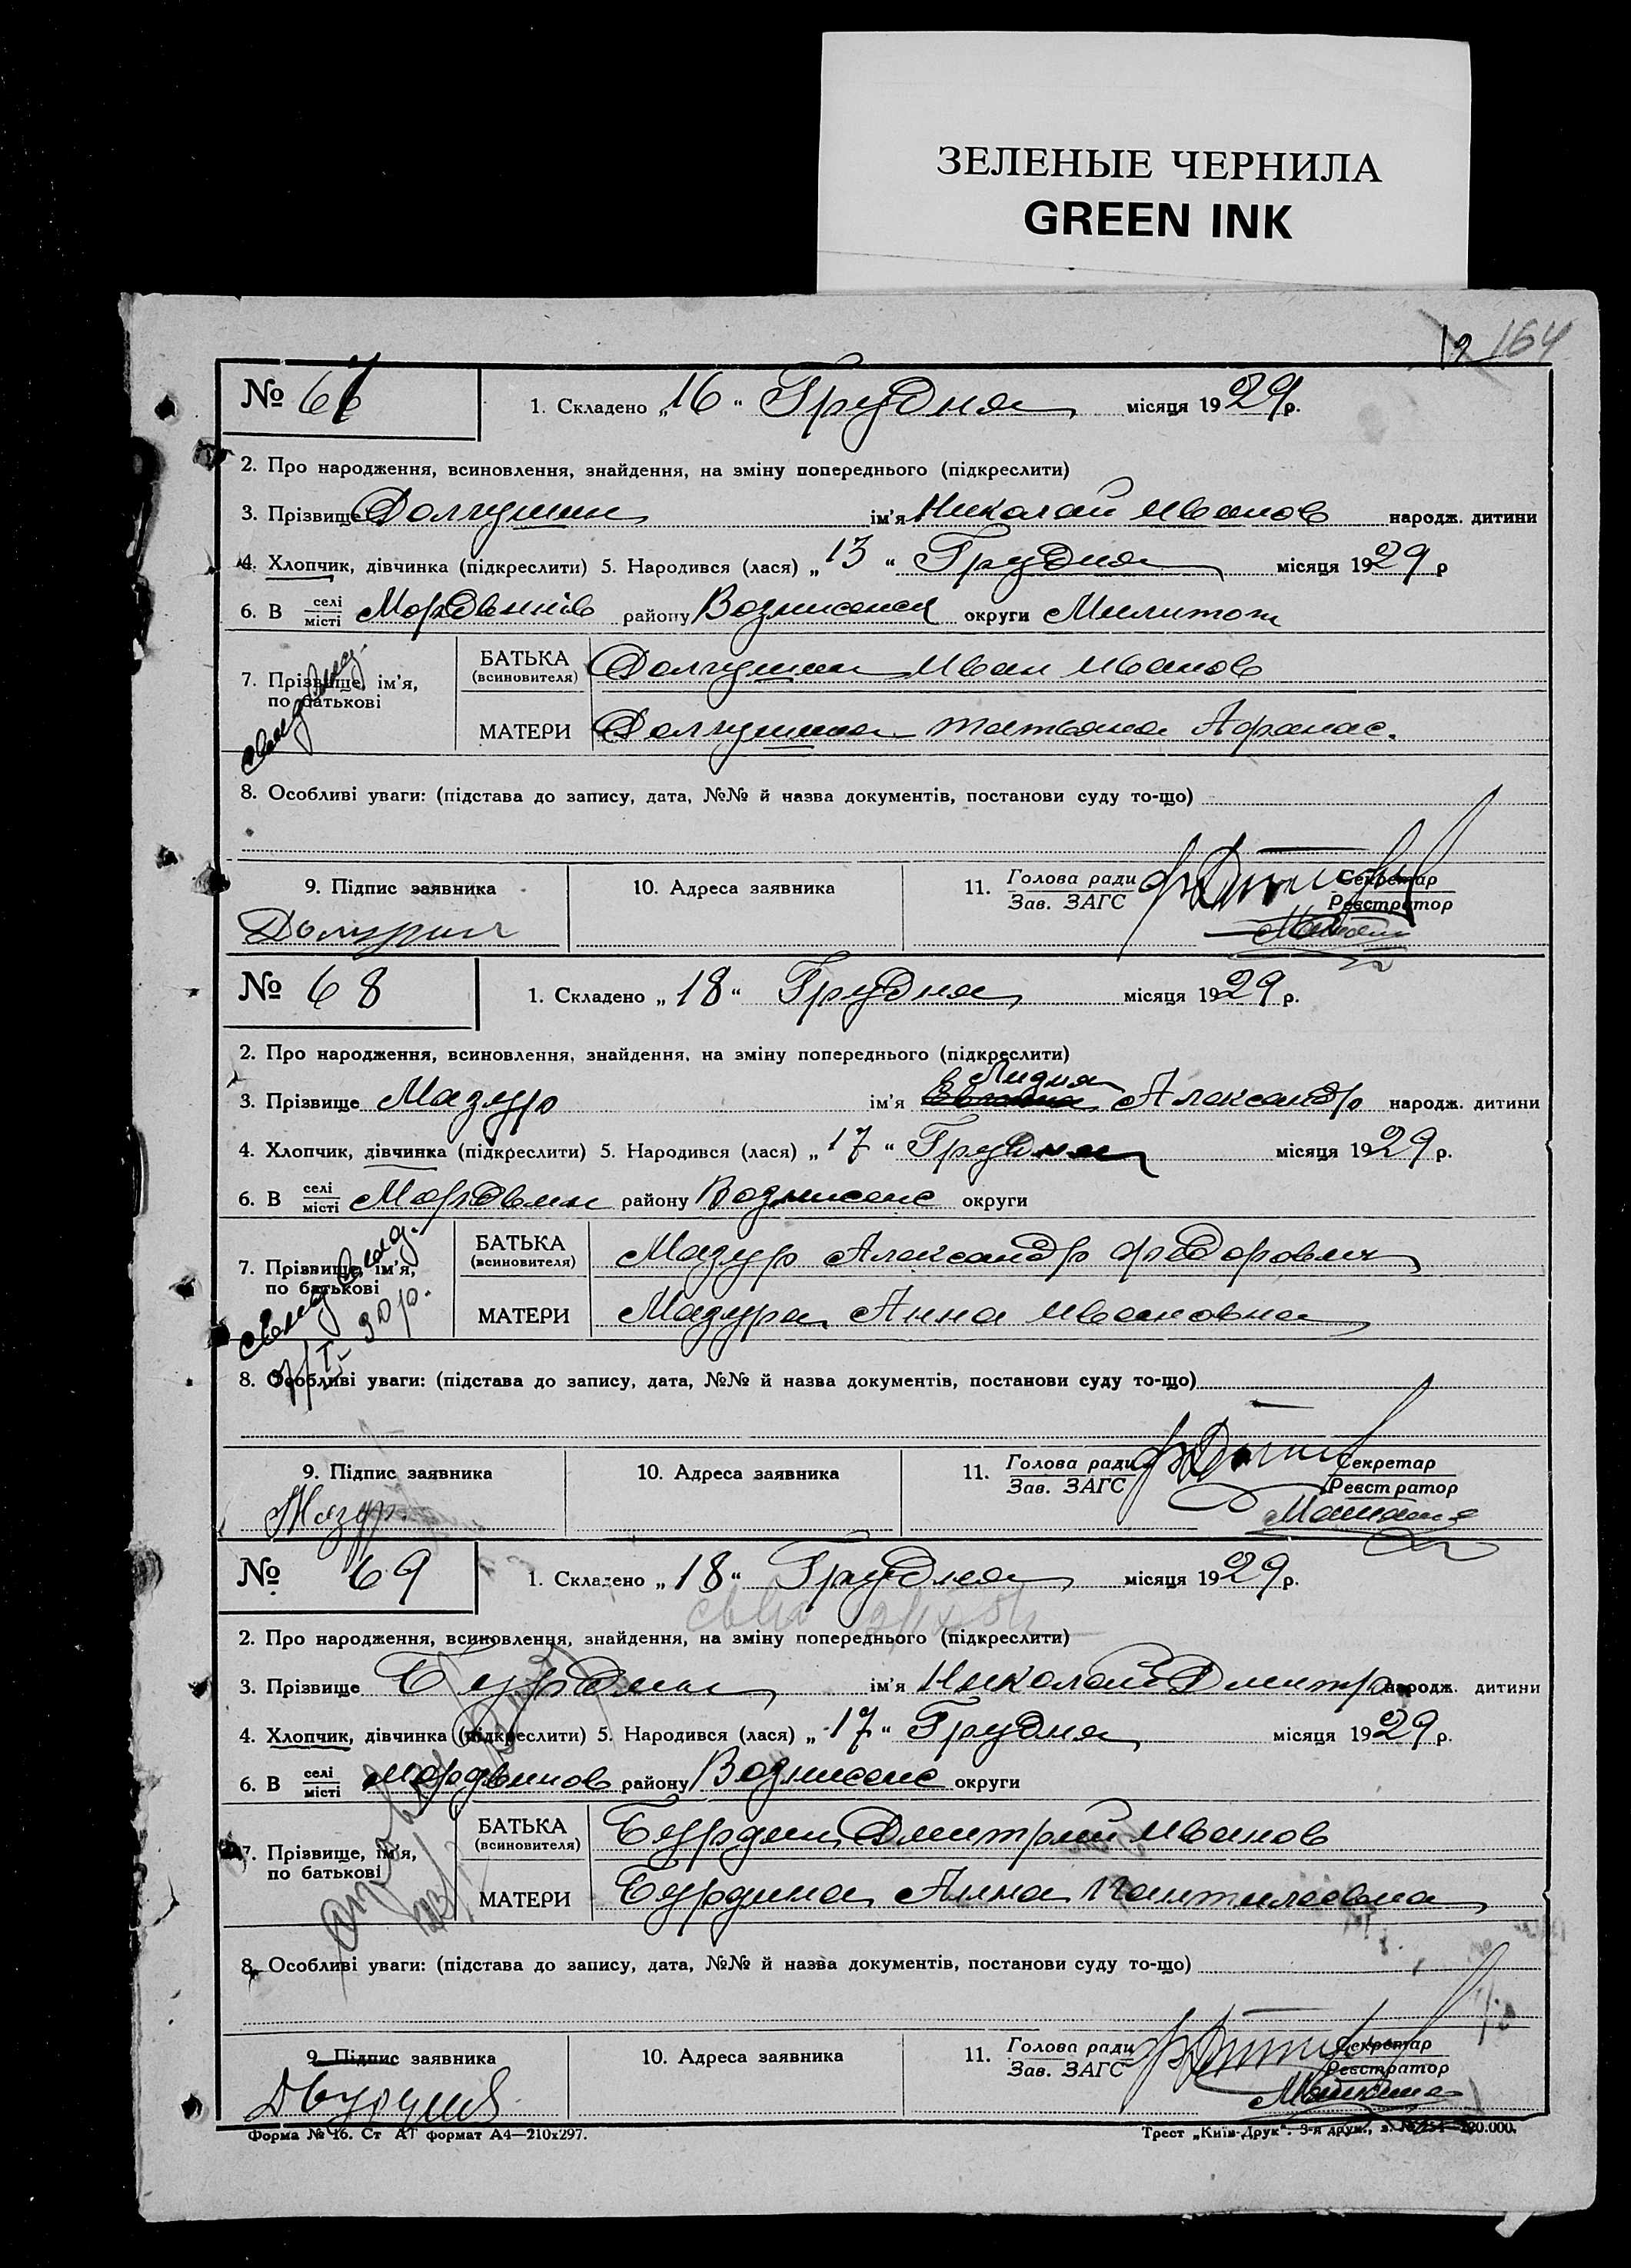 ЗЕЛЕНЫЕ ЧЕРНИЛА
GREEN INK
164
№ 67 1. Складено „16“ Грудня місяця 1929р.
2. Про народження, всиновлення, знайдення, на зміну попереднього (підкреслити)
3. Прізвище Долгушин ім'я Николай Иванов народж. дитини
4. Хлопчик, дівчинка (підкреслити) 5. Народився (лася) „13“ Грудня місяця 1929 р
6. В селі місті району округи
7. Прізвище, ім'я, по батькові
БАТЬКА (всиновителя) Долгушин Иван Иванов
МАТЕРИ Долгушина Татьяна Афанас.
8. Особливі уваги: (підстава до запису, дата, №№ й назва документів, постанови суду то-що)
9. Підпис заявника 10. Адреса заявника 11. Голова ради Зав. ЗАГС Секретар Реєстратор
№ 68 1. Складено „18“ Грудня місяця 1929 р.
2. Про народження, всиновлення, знайдення, на зміну попереднього (підкреслити)
Лидия
3. Прізвище Мазур ім'я Александр народж. дитини
4. Хлопчик, дівчинка (підкреслити) 5. Народився (лася) „17“ Грудня місяця 1929 р.
6. В селі місті Мордвин району Вознисенс округи
7. Прізвище, ім'я, по батькові
БАТЬКА (всиновителя) Мазур Александр Федорович
МАТЕРИ Мазура Анна Ивановна
8. Особливі уваги: (підстава до запису, дата, №№ й назва документів, постанови суду то-що)
9. Підпис заявника 10. Адреса заявника 11. Голова ради Зав. ЗАГС Секретар Реєстратор
Мазур
№ 69 1. Складено „18“ Грудня місяця 1929 р.
2. Про народження, всиновлення, знайдення, на зміну попереднього (підкреслити)
3. Прізвище Бурдин ім'я Николай Дмитр народж. дитини
4. Хлопчик, дівчинка (підкреслити) 5. Народився (лася) „17“ Грудня місяця 1929 р.
6. В селі місті Мордвинов району Вознисенс округи
7. Прізвище, ім'я, по батькові
БАТЬКА (всиновителя) Бурдин Дмитрий Иванов
МАТЕРИ Бурдина Анна Пантилеевна
8. Особливі уваги: (підстава до запису, дата, №№ й назва документів, постанови суду то-що)
9. Підпис заявника 10. Адреса заявника 11. Голова ради Зав. ЗАГС Секретар Реєстратор
Форма № 16. Ст АТ формат А4—210х297. Трест „Київ-Друк“. 3-я друк.,